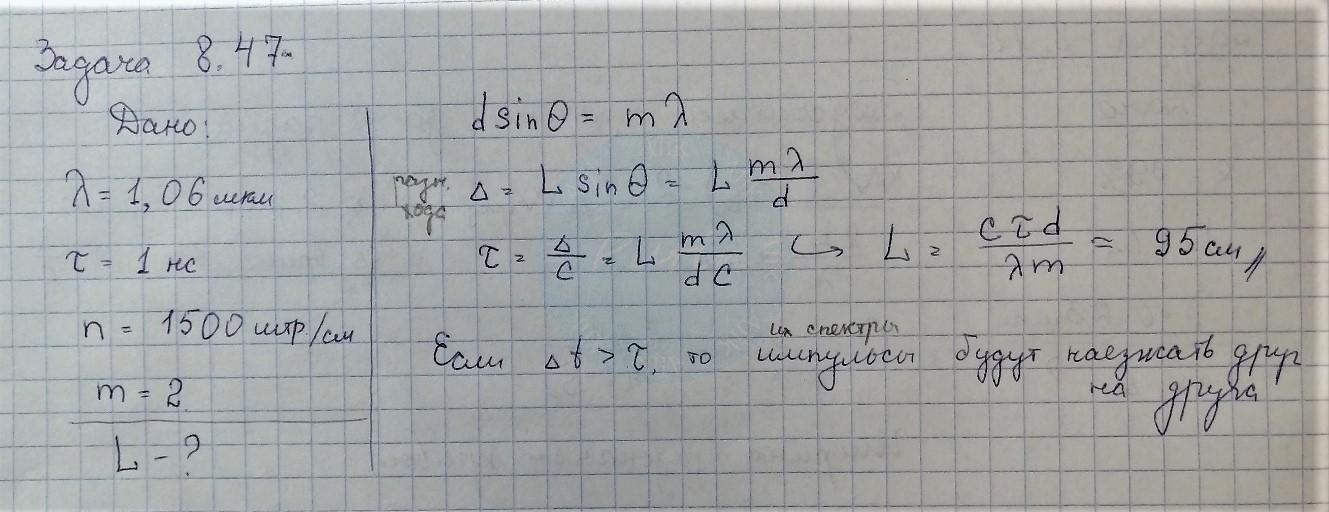 Задача 8.47
Дано:
λ = 1,06 мкм
τ = 1 нс
n = 1500 штр/см
m = 2
L - ?
d sinθ = mλ
разн. хода Δ = L sinθ = L mλ/d
τ = Δ/c = L mλ/dc ↪ L = cτd/λm = 95 см //
Если Δt > τ, то импульсы будут наезжать друг
их спектры
на друга